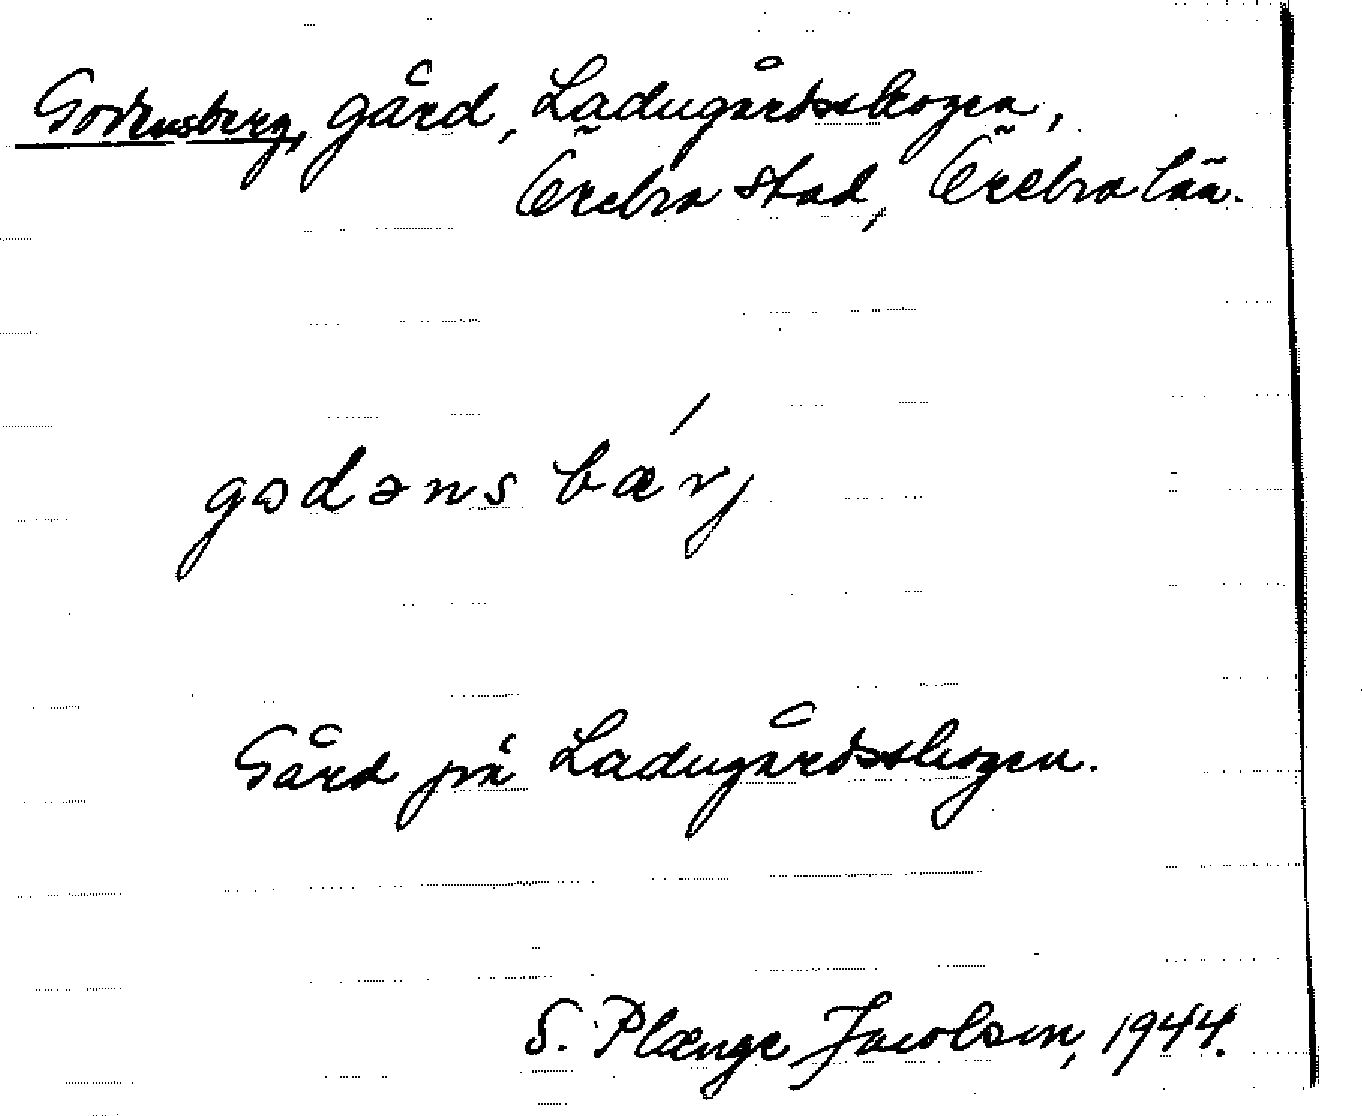 Godensberg, gård, Ladugårdsskogen,
Örebro stad, Örebro län.
godəns bǽrj
Gård på Ladugårdsskogen.
S. Plænge Jacobson, 1944.